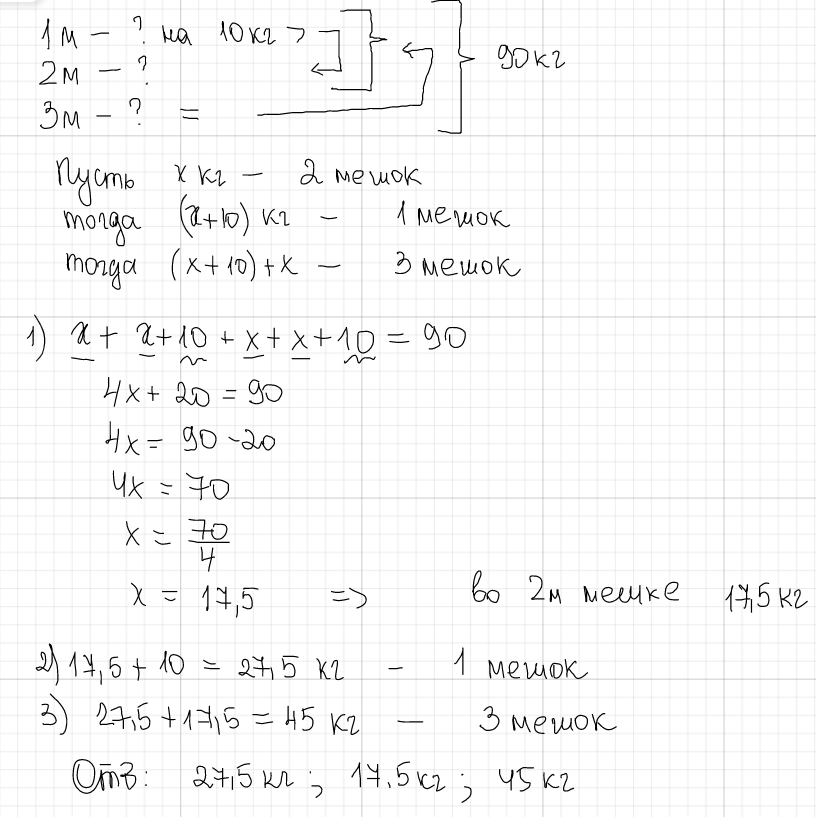 1м – ? на 10кг >
2м – ?
3м – ? =
90кг
Пусть x кг – 2 мешок
тогда (x+10) кг – 1 мешок
тогда (x+10)+x – 3 мешок
1) x + x+10 + x + x + 10 = 90
4x + 20 = 90
4x = 90 - 20
4x = 70
x = 70/4
x = 17,5 => во 2м мешке 17,5 кг
2) 17,5 + 10 = 27,5 кг – 1 мешок
3) 27,5 + 17,5 = 45 кг – 3 мешок
Отв: 27,5 кг ; 17.5кг ; 45 кг